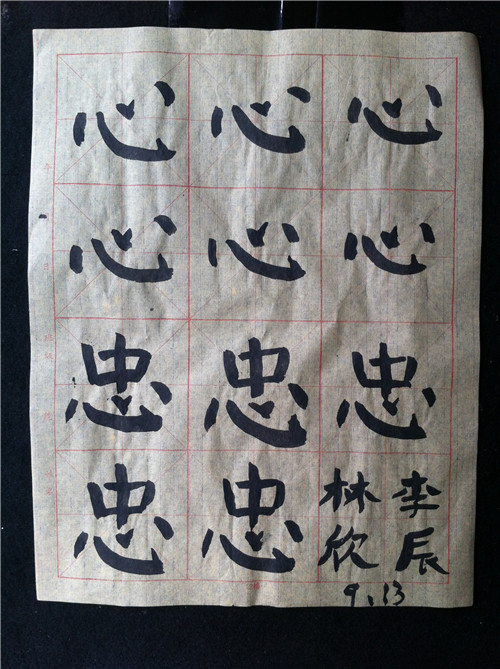 心心心
心心心
忠忠忠
忠忠
李辰
林欣
9.13